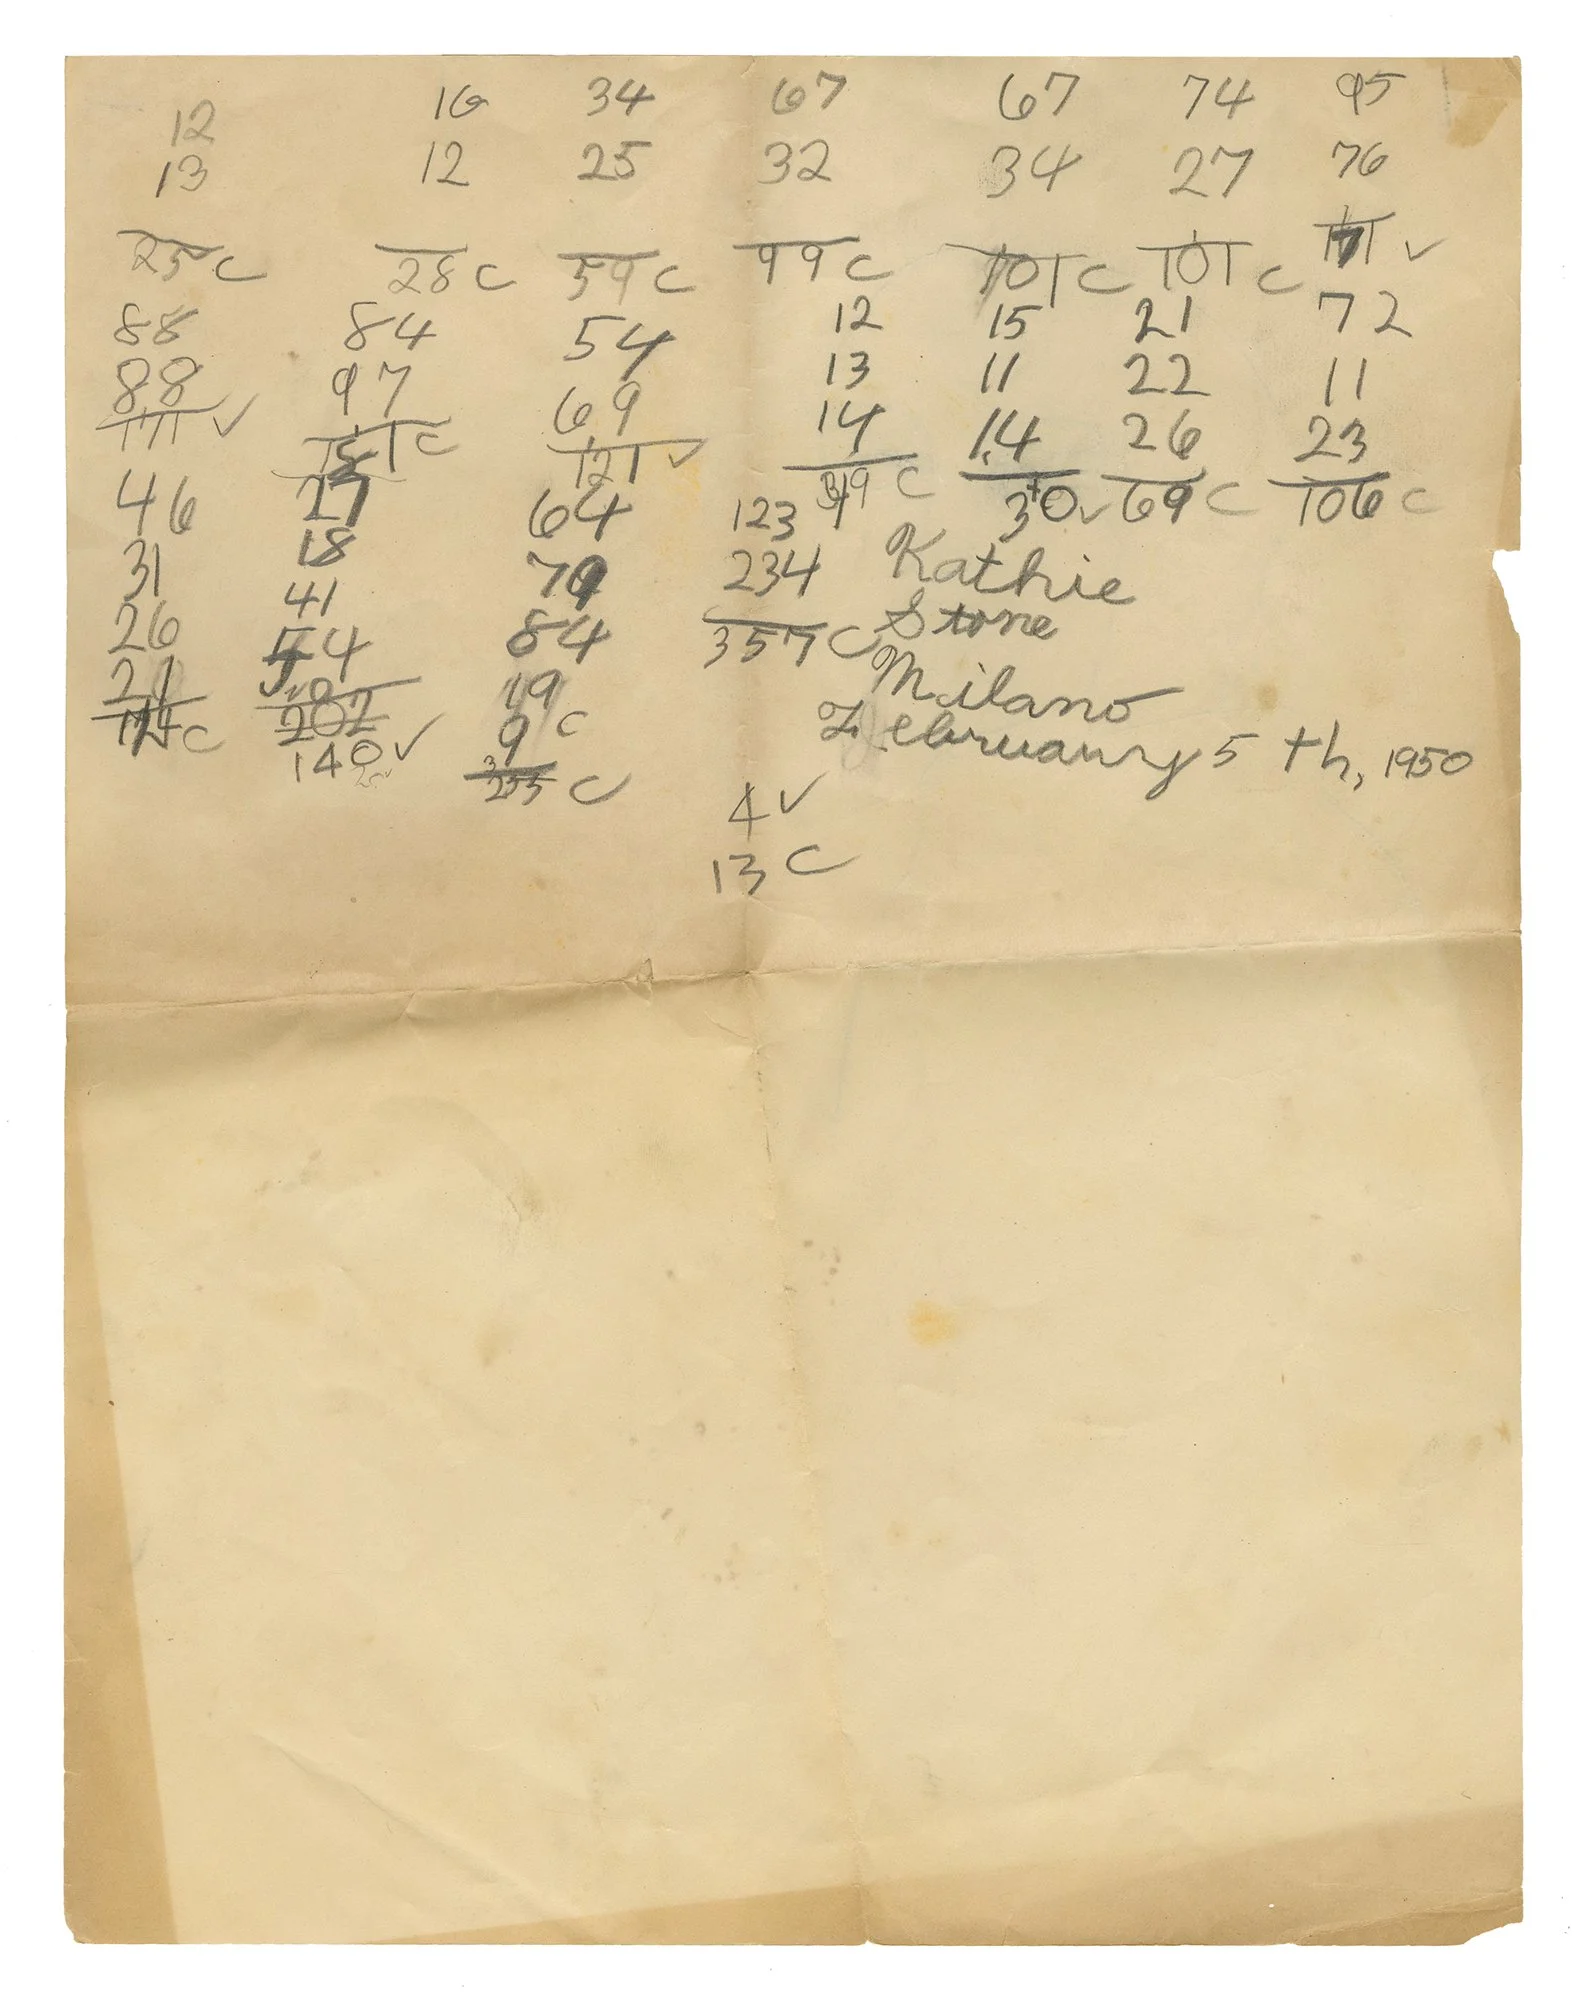 12 16 34 67 67 74 95
13 12 25 32 34 27 76
25 C 28 C 59 C 99 C 101 C 101 C 171 ✓
88 84 54 12 15 21 72
88 97 69 13 11 22 11
171 ✓ 181 C 121 ✓ 14 14 26 23
39 C 30 ✓ 69 C 106 C
46 27 64 123
31 18 79 234
26 41 84 357 C
21 54 19
124 C 202 9 C
140 ✓ 255 C
Kathie
Stone
Milano
February 5 th, 1950
4 ✓
13 C